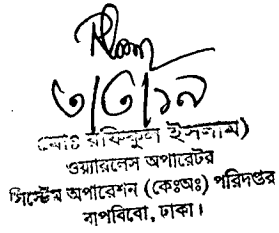 ৩/৫/১৯
(মোঃ রফিকুল ইসলাম)
ওয়্যারলেস অপারেটর
সিস্টেম অপারেশন (কেঃঅঃ) পরিদপ্তর
বাপবিবো, ঢাকা।